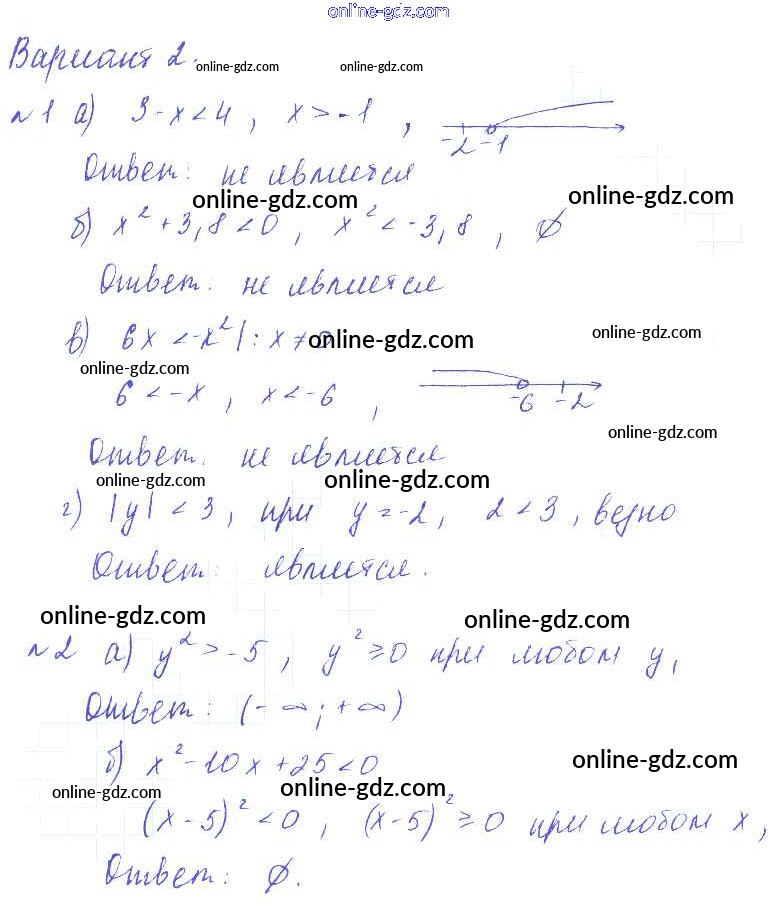 online-gdz.com
Вариант 2.
online-gdz.com online-gdz.com
№1 а) 3-x<4, x>-1,
-2 -1
Ответ: не является
online-gdz.com online-gdz.com
б) x²+3,8<0, x²<-3,8, ∅
Ответ: не является
в) 6x<-x² |: x≠0
online-gdz.com online-gdz.com
online-gdz.com
6<-x, x<-6,
-6 -2
online-gdz.com
Ответ: не является
online-gdz.com online-gdz.com
г) |y|<3, при y=-2, 2<3, верно
Ответ: является.
online-gdz.com online-gdz.com
№2 а) y²>-5, y²≥0 при любом y,
Ответ: (-∞;+∞)
б) x²-10x+25<0
online-gdz.com
online-gdz.com online-gdz.com
(x-5)²<0, (x-5)²≥0 при любом x,
Ответ: ∅.